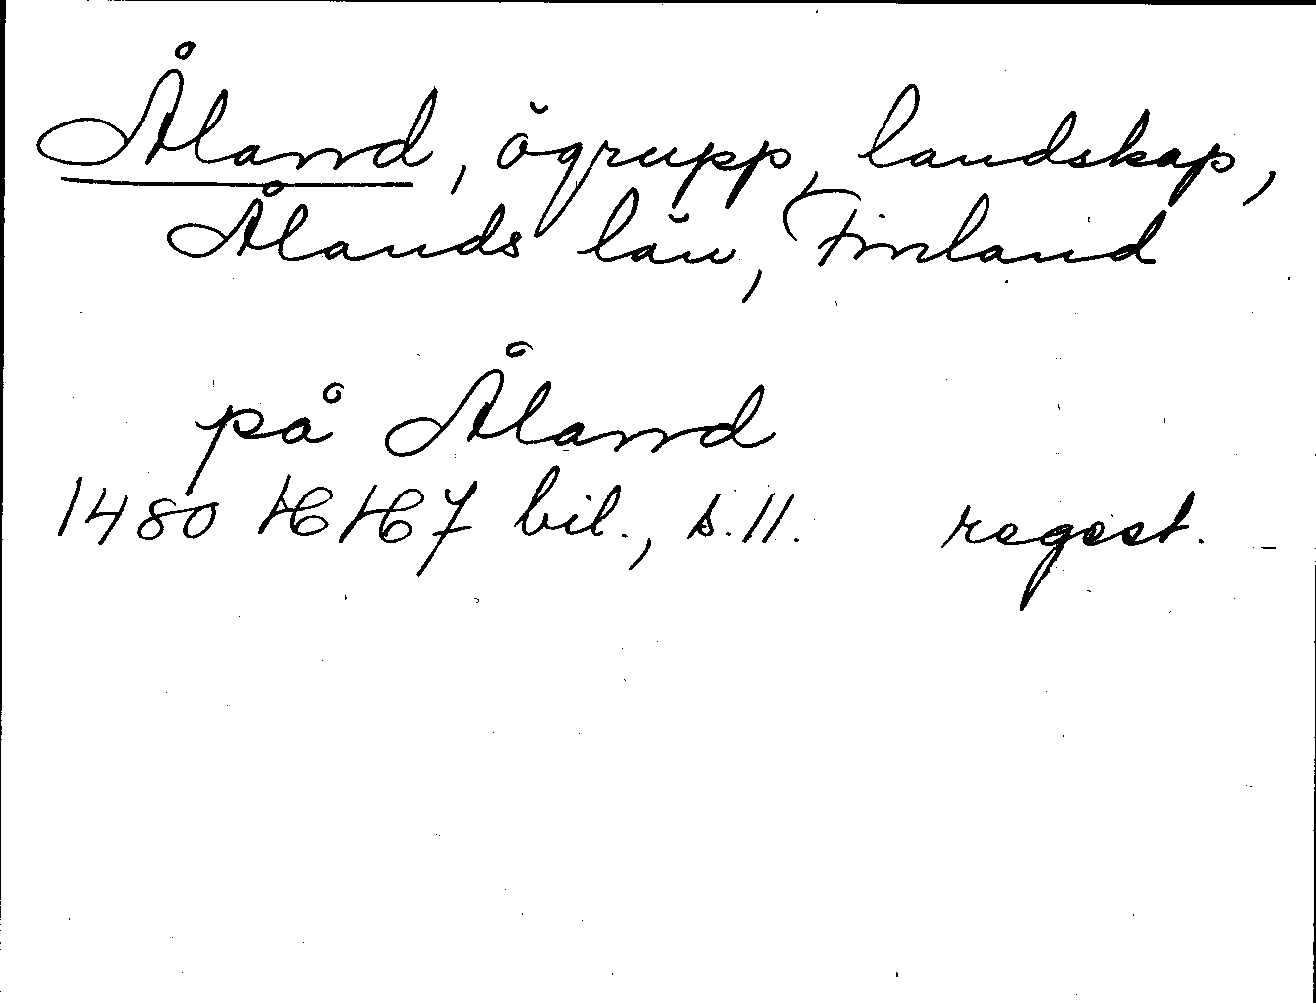 Åland, ögrupp, landskap,
Ålands län, Finland
på Åland
1480 HH 7 bil., s. 11. regest.